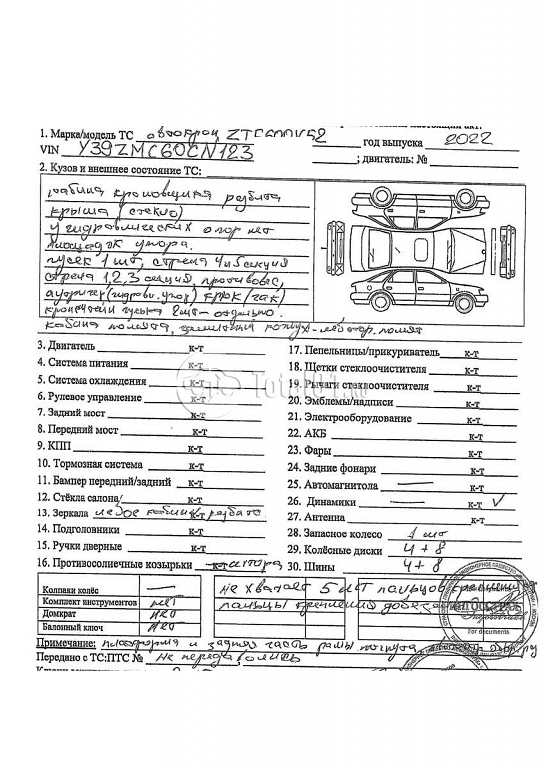 1. Марка/модель ТС автокран ZTC год выпуска 2022
VIN Y39ZMC60CN123 ; двигатель: №
2. Кузов и внешнее состояние ТС:
кабина крановщика разбита
крыша (стекло)
у гидравлических опор нет
площадок упора.
гусек 1 шт, стрела 4 и 5 секция
стрела 1,2,3 секция, противовес,
крюк (гак)
гуська 2шт-отдельно.
кабина помята,
3. Двигатель к-т
4. Система питания к-т
5. Система охлаждения к-т
6. Рулевое управление к-т
7. Задний мост к-т
8. Передний мост к-т
9. КПП к-т
10. Тормозная система к-т
11. Бампер передний/задний к-т
12. Стёкла салона/ к-т
13. Зеркала левое кабины разбито. к-т
14. Подголовники к-т
15. Ручки дверные к-т
16. Противосолнечные козырьки к-т штора
17. Пепельницы/прикуриватель к-т
18. Щетки стеклоочистителя к-т
19. Рычаги стеклоочистителя к-т
20. Эмблемы/надписи к-т
21. Электрооборудование к-т
22. АКБ к-т
23. Фары к-т
24. Задние фонари к-т
25. Автомагнитола — к-т
26. Динамики — к-т ✓
27. Антенна к-т
28. Запасное колесо 1 шт
29. Колёсные диски 4+8
30. Шины 4+8
Колпаки колёс —
Комплект инструментов нет
Домкрат нет
Балонный ключ нет
не хватает 5 шт пальцев крепления
пальцы крепления
For documents
Примечание: платформа и задняя часть рамы погнута
Передано с ТС:ПТС № не передавались